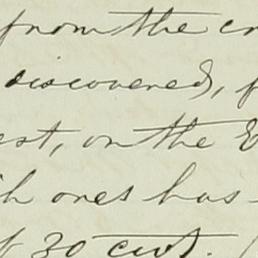 from the cr
discovered, f
est, on the E
h ones has
f 30 cwt.